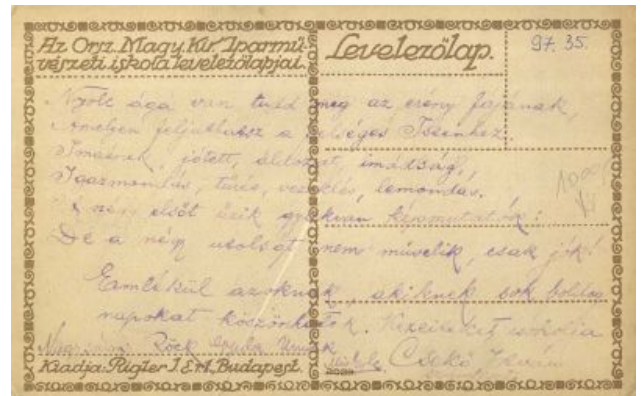 Az Orsz. Magy. Kir. Iparmű-
vészeti iskola levelezőlapjai.
Levelezőlap.
97. 35.
Nyolc ága van tudd meg az erény fájának,
Amelyen feljuthatsz a felséges Istenhez
jótett, áldozat, imádság,
Igazmondás, tűrés, vezeklés, lemondás.
négy elsőt űzik gyakran képmutatók:
De a négy utolsót nem művelik, csak jók!
Emlékül azoknak, akiknek sok boldog
napokat köszönhetek. Kezeiket csókolja
Röck Gyula
Csekő István
Kiadja: Rigler J. E. R.T. Budapest.